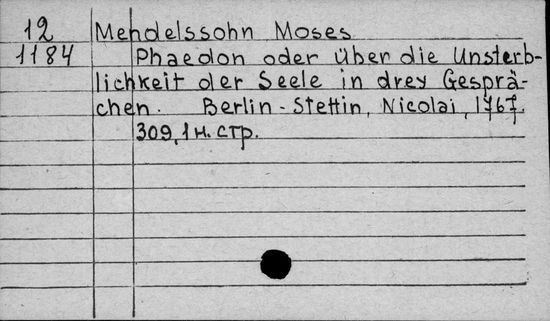 12 Mendelssohn Moses
1184 Phaedon oder über die Unsterb-
lichkeit der Seele in drey Gesprä-
chen. Berlin-Stettin, Nicolai, 1767.
309, 1 н. стр.